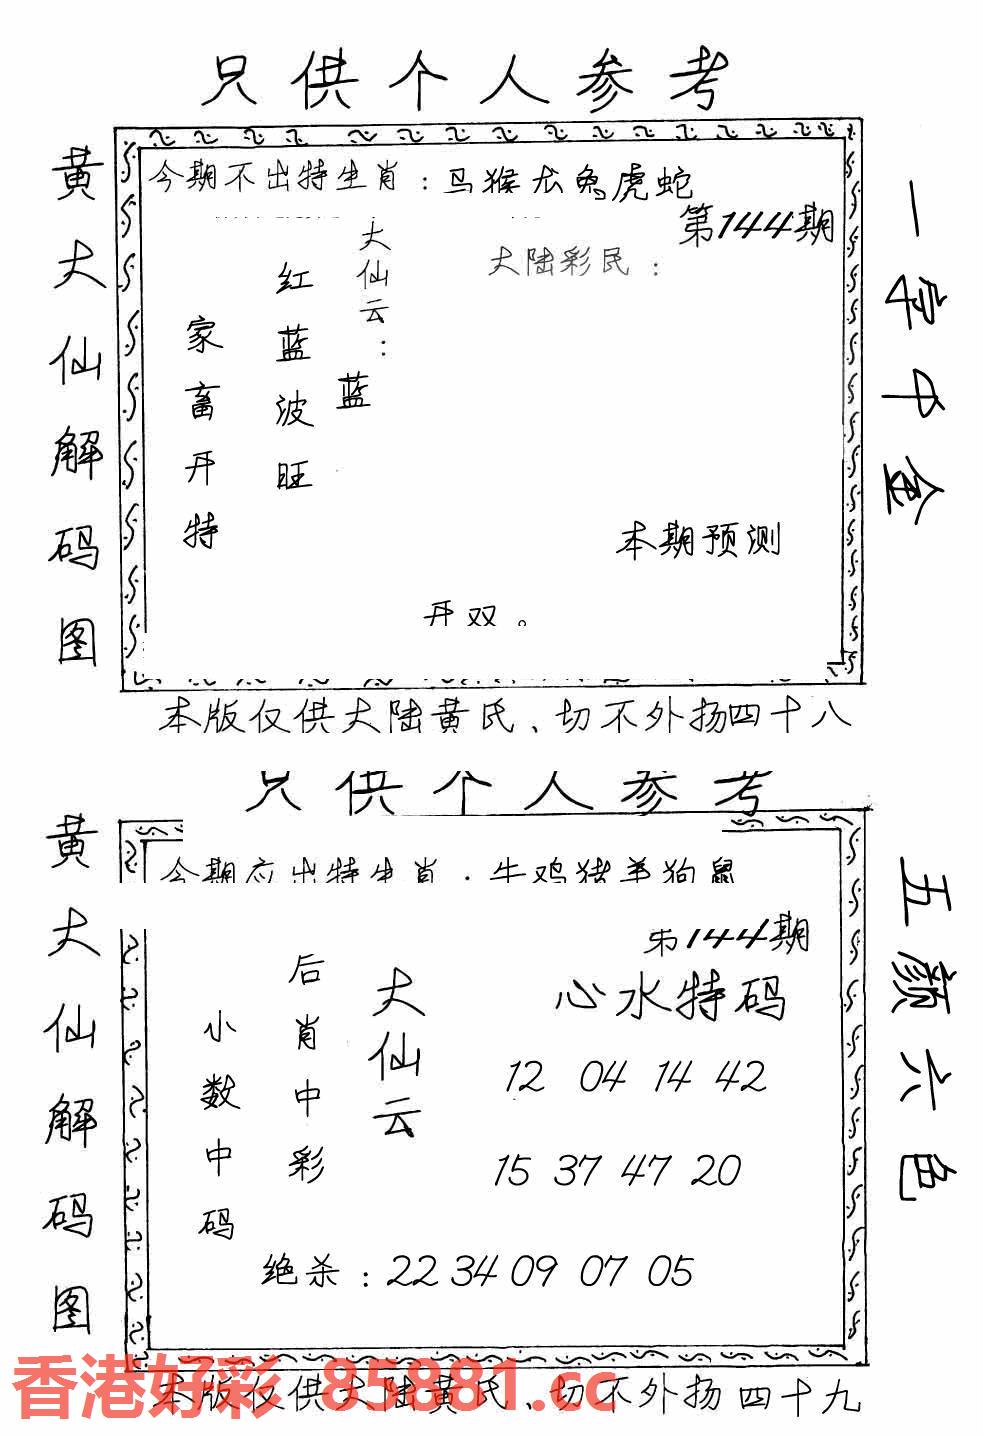 只供个人参考
黄大仙解码图
今期不出特生肖：马猴龙兔虎蛇
第144期
大陆彩民：
大仙云：
红蓝波旺
蓝
家畜开特
本期预测
开双。
一字中金
本版仅供大陆黄氏、切不外扬四十八
只供个人参考
黄大仙解码图
今期应出特生肖：牛鸡猪羊狗鼠
第144期
心水特码
大仙云
后肖中彩
小数中码
12 04 14 42
15 37 47 20
绝杀：22 34 09 07 05
五颜六色
香港好彩 85881.cc
本版仅供大陆黄氏、切不外扬四十九